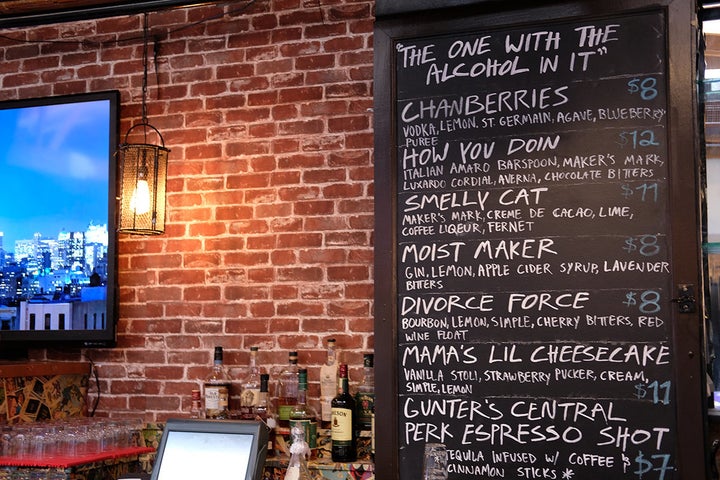 "THE ONE WITH THE
ALCOHOL IN IT"
CHANBERRIES $8
VODKA, LEMON, ST. GERMAIN, AGAVE, BLUEBERRY
PUREE
HOW YOU DOIN $12
ITALIAN AMARO BARSPOON, MAKER'S MARK,
LUXARDO CORDIAL, AVERNA, CHOCOLATE BITTERS
SMELLY CAT $11
MAKER'S MARK, CREME DE CACAO, LIME,
COFFEE LIQEUR, FERNET
MOIST MAKER $8
GIN, LEMON, APPLE CIDER SYRUP, LAVENDER
BITTERS
DIVORCE FORCE $8
BOURBON, LEMON, SIMPLE, CHERRY BITTERS, RED
WINE FLOAT
MAMA'S LIL CHEESECAKE
VANILLA STOLI, STRAWBERRY PUCKER, CREAM,
SIMPLE, LEMON $11
GUNTER'S CENTRAL
PERK ESPRESSO SHOT
TEQUILA INFUSED W/ COFFEE & $7
CINNAMON STICKS *